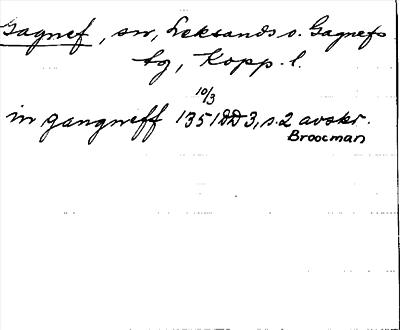 Gagnef, sn, Leksands o. Gagnefs
tg, Kopp. l.
10/3
in gangneff 1351 DD 3, s. 2 avskr.
Broocman